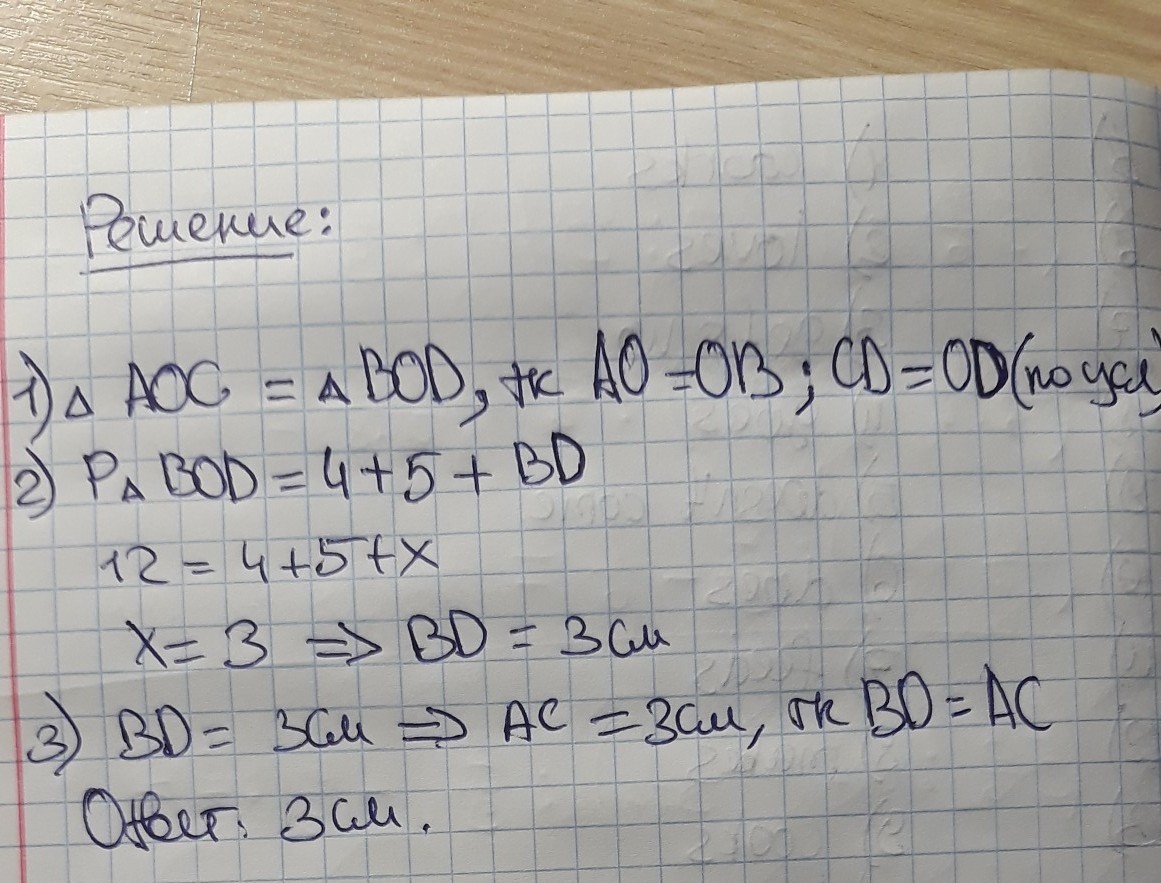 Решение:
1) △ AOC = △ BOD, тк AO = OB ; CD = OD (по усл)
2) P△ BOD = 4 + 5 + BD
12 = 4 + 5 + x
x = 3 ⇒ BD = 3 см
3) BD = 3 см ⇒ AC = 3 см, тк BD = AC
Ответ: 3 см.